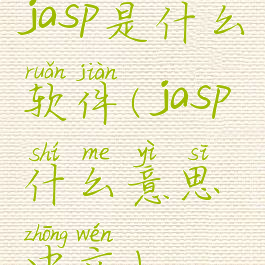 jasp是什么
ruǎn jiàn
软件(jasp
shí me yì sī
什么意思
zhōng wén
中文)